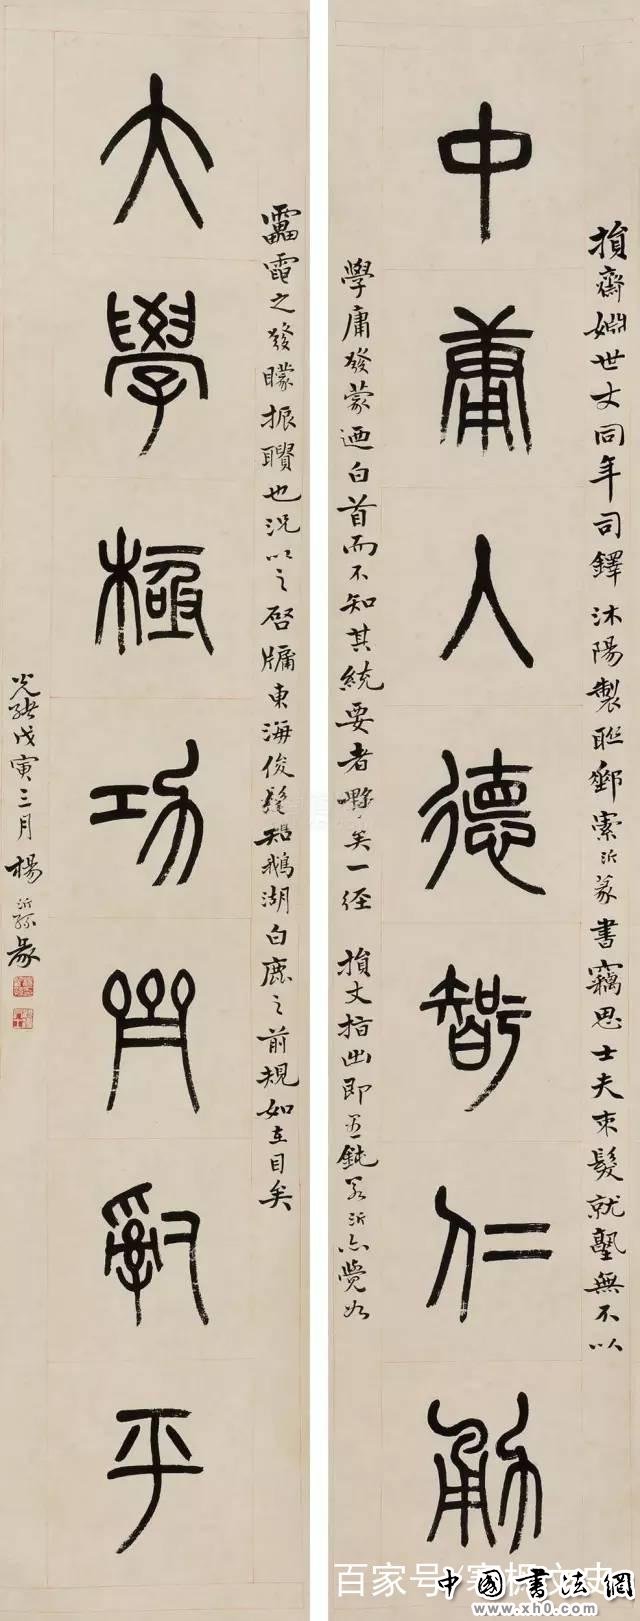 中庸人德智仁勇
損齋姻世丈同年司鐸沭陽製聯郵索沂篆書竊思士夫束髮就塾無不以
學庸發蒙迺白首而不知其統要者夥矣一經 損丈指出即至鈍若沂亦覺如
大學極功齊治平
靁電之發矇振聵也況以之啓牖東海俊髦知鵝湖白鹿之前規如在目矣
光緒戊寅三月楊沂孫篆
百家号/寒梅文史
中國書法網
www.xh0.com